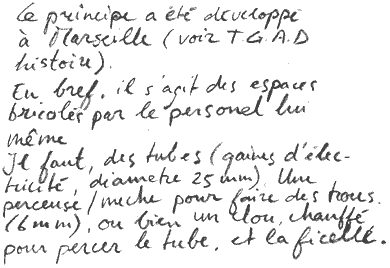 Le principe a été développé
à Marseille (voir T.G.A.D
histoire).
En bref, il s'agit des espaces
bricolés par le personel lui
même
Il faut, des tubes (gaines d'élec-
tricité, diametre 25 mm). Une
perceuse/meche pour faire des trous.
(6 mm), ou bien un clou, chauffé
pour percer le tube, et la ficelle.